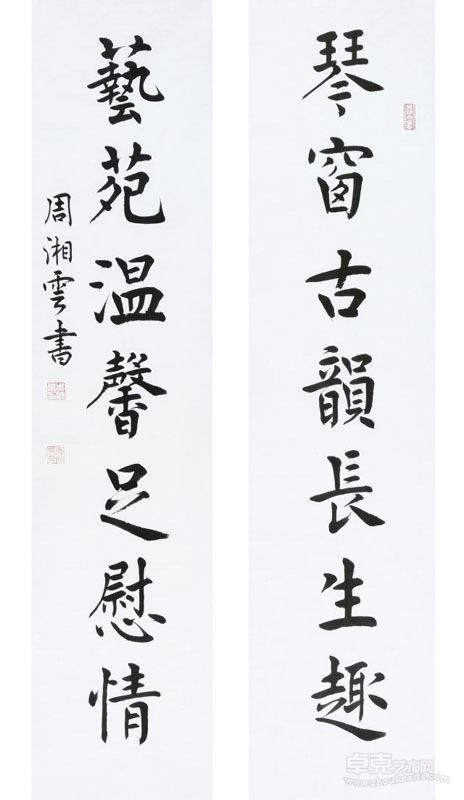 琴窗古韻長生趣
藝苑温馨足慰情
周湘雲書
卓克艺术网